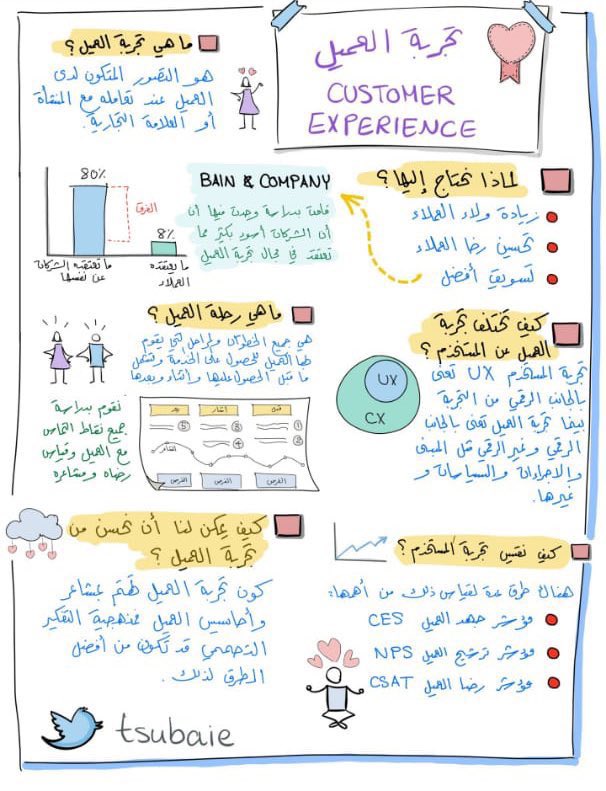 تجربة العميل
CUSTOMER
EXPERIENCE
ما هي تجربة العميل ؟
هو التصور المتكون لدى
العميل عند تعامله مع المنشأة
أو العلامة التجارية.
لماذا نحتاج إليها ؟
زيادة ولاء العملاء
تحسين رضا العملاء
تسويق أفضل
BAIN & COMPANY
قامت بدراسة وجدت فيها أن
أن الشركات أسوء بكثير مما
تعتقد في مجال تجربة العميل
80%
الفرق
8%
ما تعتقده الشركات
عن نفسها
ما يعتقده
العملاء
كيف تختلف تجربة
العميل عن المستخدم ؟
تجربة المستخدم UX تعنى
بالجانب الرقمي من التجربة
بينما تجربة العميل تعنى بالجانب
الرقمي وغير الرقمي مثل المبنى
والإجراءات والسياسات و
غيرها.
UX
CX
ما هي رحلة العميل ؟
هي جميع الخطوات والمراحل التي يقوم
بها العميل للحصول على الخدمة وتشمل
ما قبل الحصول عليها وأثناء وبعدها
نقوم بدراسة
جميع نقاط التماس
مع العميل وقياس
رضاه ومشاعره
قبل
أثناء
بعد
1
2
3
4
5
المشاعر
الفرص
الفرص
الفرص
كيف نقيس تجربة المستخدم ؟
هناك طرق عدة لقياس ذلك من أهمها:
مؤشر جهد العميل CES
مؤشر ترشيح العميل NPS
مؤشر رضا العميل CSAT
كيف يمكن لنا أن نحسن من
تجربة العميل ؟
كون تجربة العميل تهتم بمشاعر
وأحاسيس العميل فمنهجية التفكير
التصميمي قد تكون من أفضل
الطرق لذلك.
tsubaie